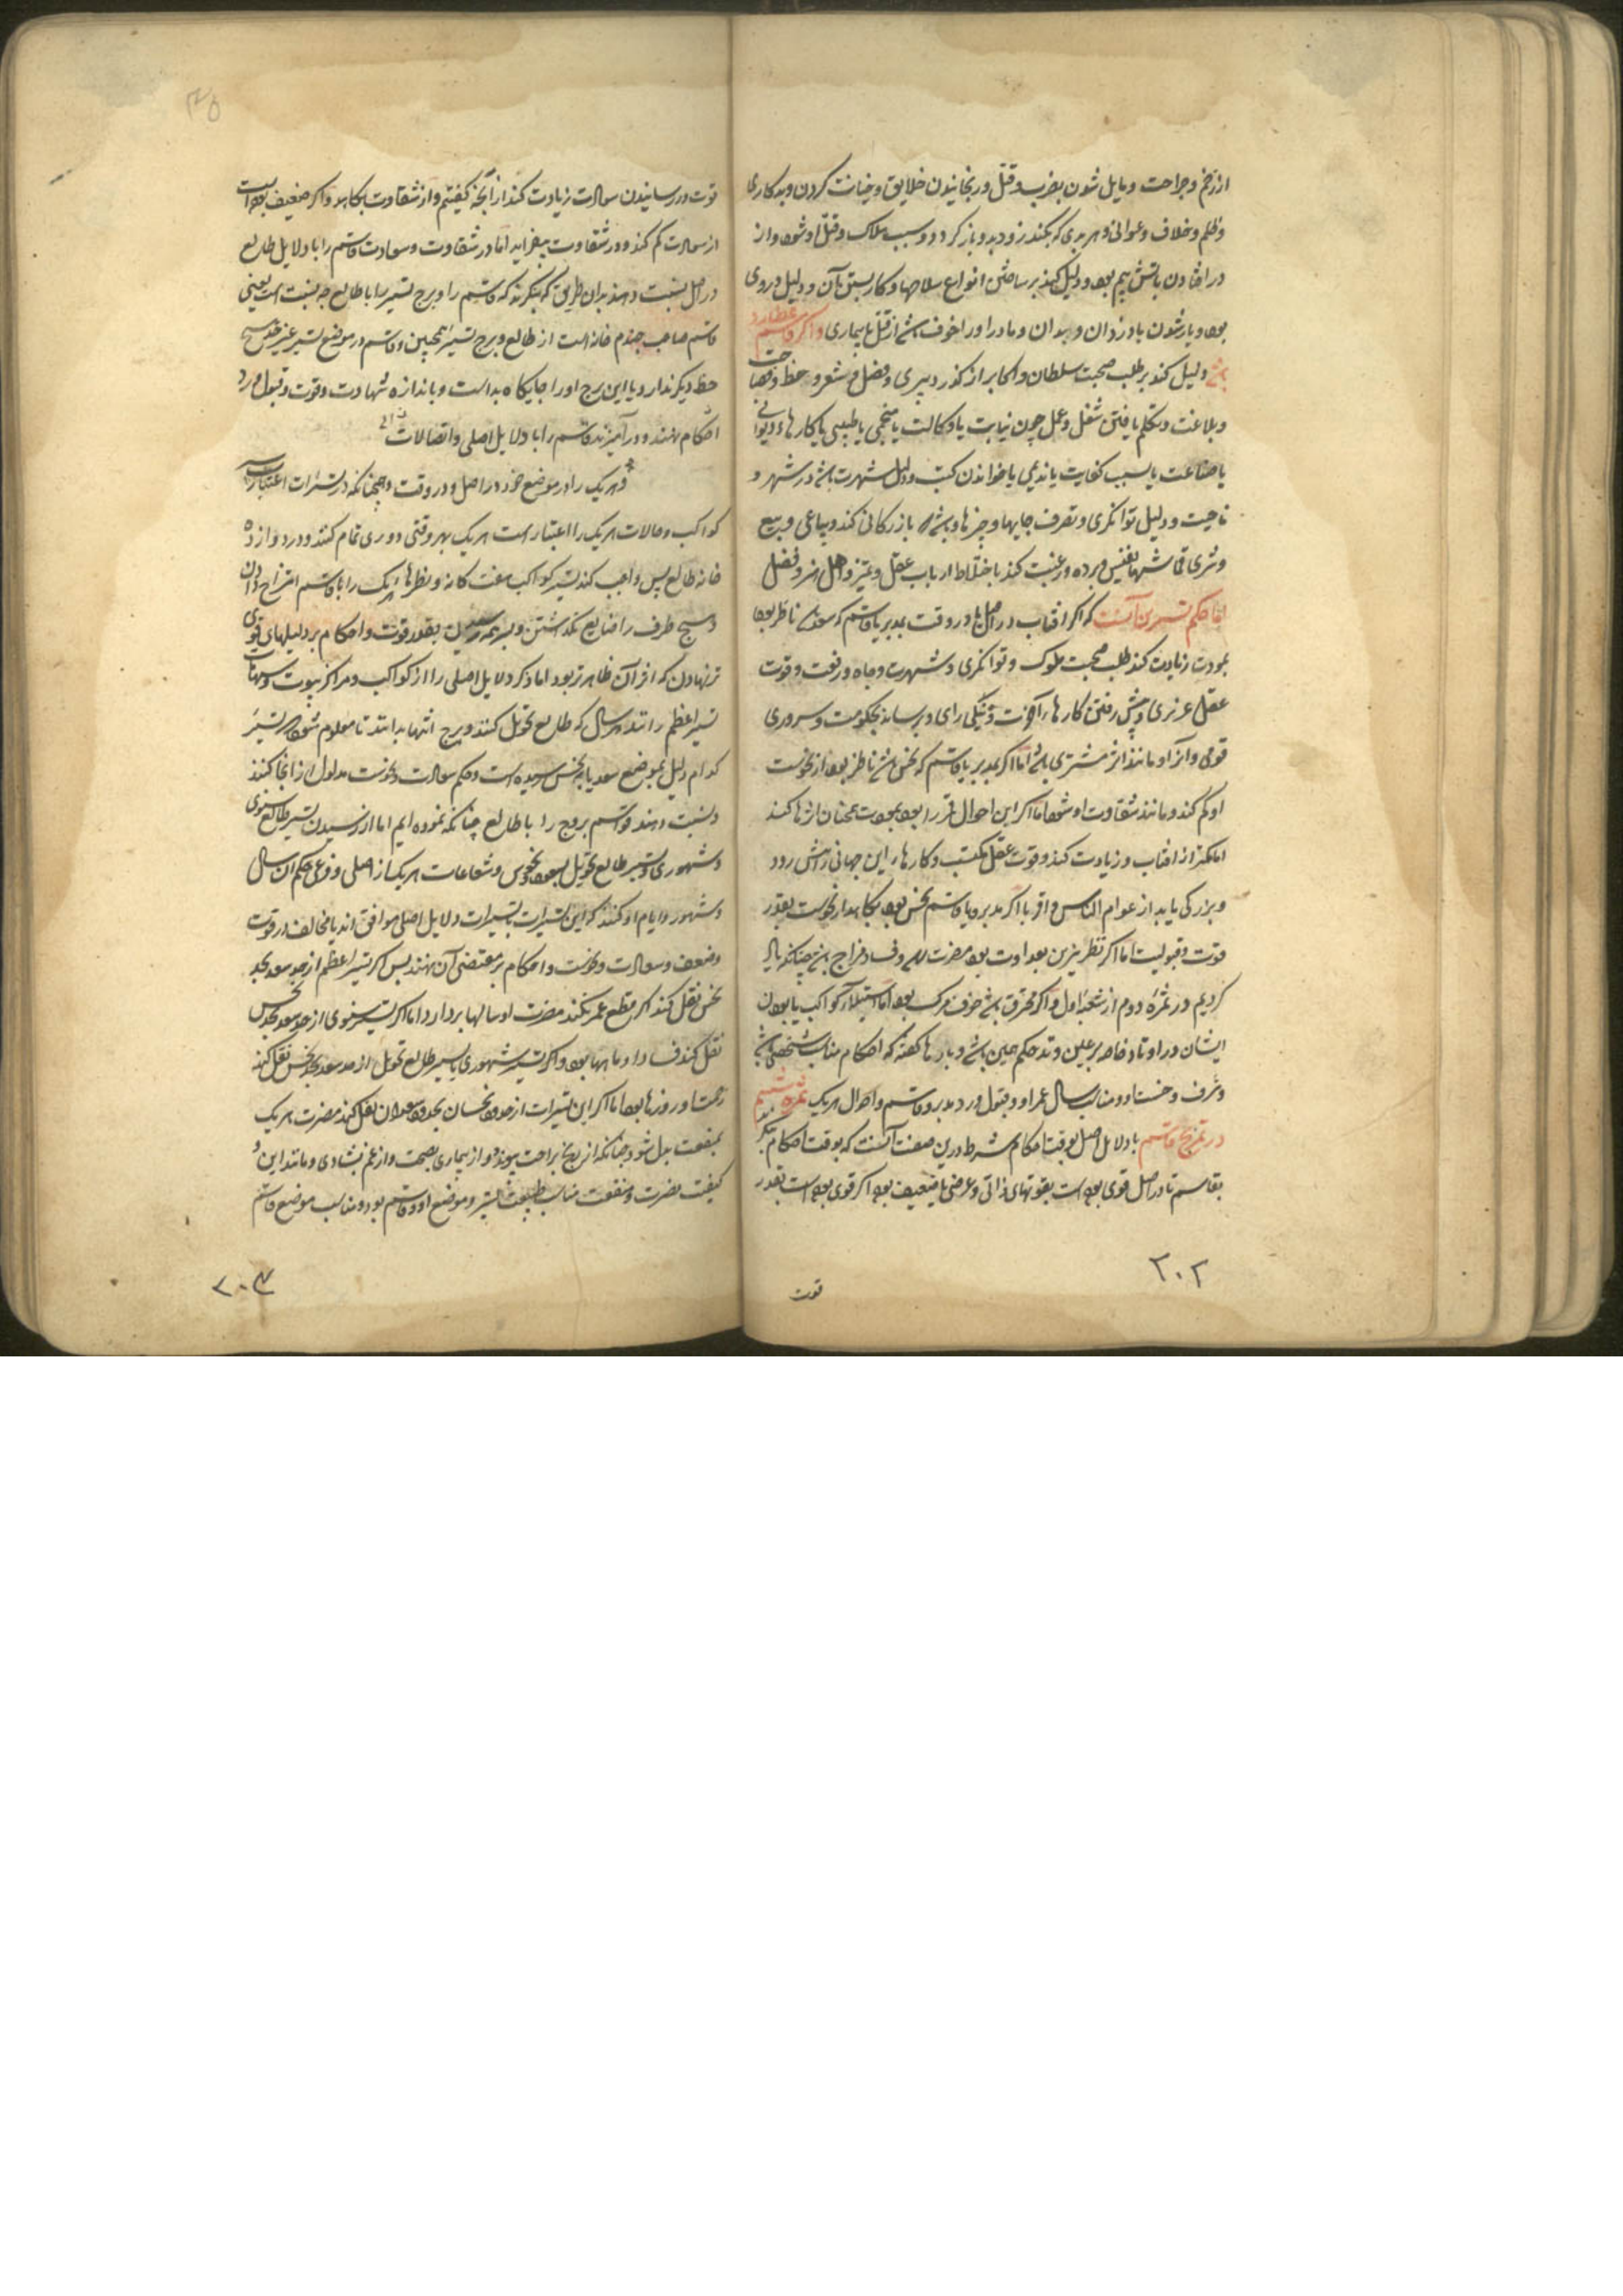 از زخم و جراحت و مایل شدن بضرب و قتل و رنجانیدن خلایق و خیانت کردن و بدکاری
و ظلم و خلاف و عوانی و هر بدی که بکند زود بدو باز کردد و سبب هلاک و قتل او شود و از
در افتادن باتش بیم بود و دلیل کند بر ساختن انواع سلاحها و کار بستن آن و دلیل دزدی
بود و یار شدن با دزدان و بدان و مادر او را خوف باشد از قتل یا بیماری و اکر قاسم عطارد
باشد دلیل کند بر طلب صحبت سلطان و اکابر از کذر دبیری و فضل و شعر و خط و فصاحت
و بلاغت و تکلم یا یافتن شغل و عمل چون نیابت یا وکالت یا منجمی یا طبیبی یا کارهاء دیوانی
یا صناعت یا سبب کفایت یا ندیمی یا خواندن کتب و دلیل شهرت باشد در شهر و
ناحیت و دلیل توانکری و تصرف جایها و چیزها و باشد که بازرکانی کند و بیاعی و بیع
و شری قماشهاء نفیس و برده و رغبت کند باختلاط ارباب عقل و تمیز و اهل هنر و فضل
اما حکم تسییر آنست که اکر افتاب در اصل یا در وقت بمدبر یا قاسم که سعد باشد ناظر بود
بمودت زیادت کند طلب صحبت ملوک و توانکری و شهرت و جاه و رفعت و قوت
عقل غریزی و پیش رفتن کارهاء آخرت و نیکی رای و برساند بحکومت و سروری
قومی و اثر او مانند اثر مشتری باشد اما اکر بمدبر یا قاسم که نحس باشد ناظر بود از نحوست
او کم کند و مانند شقاوت او شود اما اکر این احوال قمر را بود بمودت همچنان اثرها کند
اما کمتر از افتاب و زیادت کند قوت عقل مکتسب و کارهاء این جهانی از پیش رود
و بزرکی یابد از عوام الناس و اقربا اکر مدبر و یا قاسم نحس بود بکاهد از نحوست بقدر
قوت و قبولیت اما اکر نظر نیرین بعداوت بود مضرت رسد و فساد مزاج باشد چنانکه یاد
کردیم در ثمرهٔ دوم از شعبهٔ اول و اکر محترق باشد خوف مرک بود اما استیلاء کواکب یا بودن
ایشان در اوتاد خاصه بر عین وتد حکم همین باشد و بارها کفته که احکام مناسب شخص باشد
و شرف و خست او و مناسب سال عمر او و قبول و رد مدبر و قاسم و احوال هریک ثمره ششم
در تمزیج قاسم با دلایل اصل بوقت احکام شرط درین صفت آنست که بوقت احکام بنکرند
بقاسم تا در اصل قوی بوده است بقوتهای ذاتی و عرضی یا ضعیف بود اکر قوی بوده است بقدر
قوت
۲۰۲
قوت در رسانیدن سعادت زیادت کند از آنچه کفتیم و از شقاوت بکاهد و اکر ضعیف بوده است
از سعادت کم کند و در شقاوت بیفزاید اما در شقاوت و سعادت قاسم را با دلایل طالع
در اصل نسبت دهند بدان طریق که بنکرند که قاسم را و برج تسییر را با طالع چه نسبت است یعنی
قاسم صاحب چندم خانه است از طالع و برج تسییر همچنین و قاسم در موضع تسییر غیر حد هیچ
حظ دیکر ندارد یا این برج او را جایکاه بد است و باندازه شهادت و قوت و قبول و رد
احکام نهند و در آمیزند قاسم را با دلایل اصلی و اتصالات
و هریک را در موضع خود در اصل و در وقت و همچنانکه در تسییرات اعتبار است
کواکب و حالات هریک را اعتبار است هریک بهر وقتی دوری تمام کنند و در دوازده
خانه طالع پس واجب کند تسییر کواکب هفت کانه و نظرهاء هریک را با قاسم امتزاج دادن
و هیچ طرف را ضایع نکذاشتن و بهمه رسیدن بقدر قوت و احکام بر دلیلهای قوی
تر نهادن که اثر آن ظاهرتر بود اما ذکر دلایل اصلی را از کواکب و مراکز بیوت و سهام
تسییر اعظم رانند هر سال که طالع تحویل کنند و برج انتها بدانند تا معلوم شود که تسییر
کدام دلیل بموضع سعد یا به نحس رسیده است و حکم سعادت و نحوست مدلول از انجا کنند
و نسبت دهند قواسم بروج را با طالع چنانکه نموده ایم اما از رسیدن تسییر طالع سنوی
و شهوری و تسییر طالع تحویل بسعود و نحوس و شعاعات هریک از اصلی و فرعی حکم آن سال
و شهور و ایام او کنند که این تسییرات بتسییرات دلایل اصلی موافق اند یا مخالف در قوت
و ضعف و سعادت و نحوست و احکام بر مقتضی آن نهند پس اکر تسییر اعظم از حد سعد بحد
نحس نقل کند اکر قطع عمر نکند مضرت او سالها بردارد اما اکر تسییر سنوی از حد سعد بحد نحس
نقل کند فساد او ماهها بود و اکر تسییر شهوری یا تسییر طالع تحویل از حد سعد بحد نحس نقل کند
زحمت او روزها بود اما اکر این تسییرات از حدود نحسان بحدود سعدان نقل کند مضرت هریک
بمنفعت بدل شود چنانکه از رنج براحت پیوندد و از بیماری بصحت و از غم بشادی و مانند این و
کیفیت مضرت و منفعت مناسب طبیعت تسییر و موضع او و قاسم بود و مناسب موضع قاسم
۲۰۳